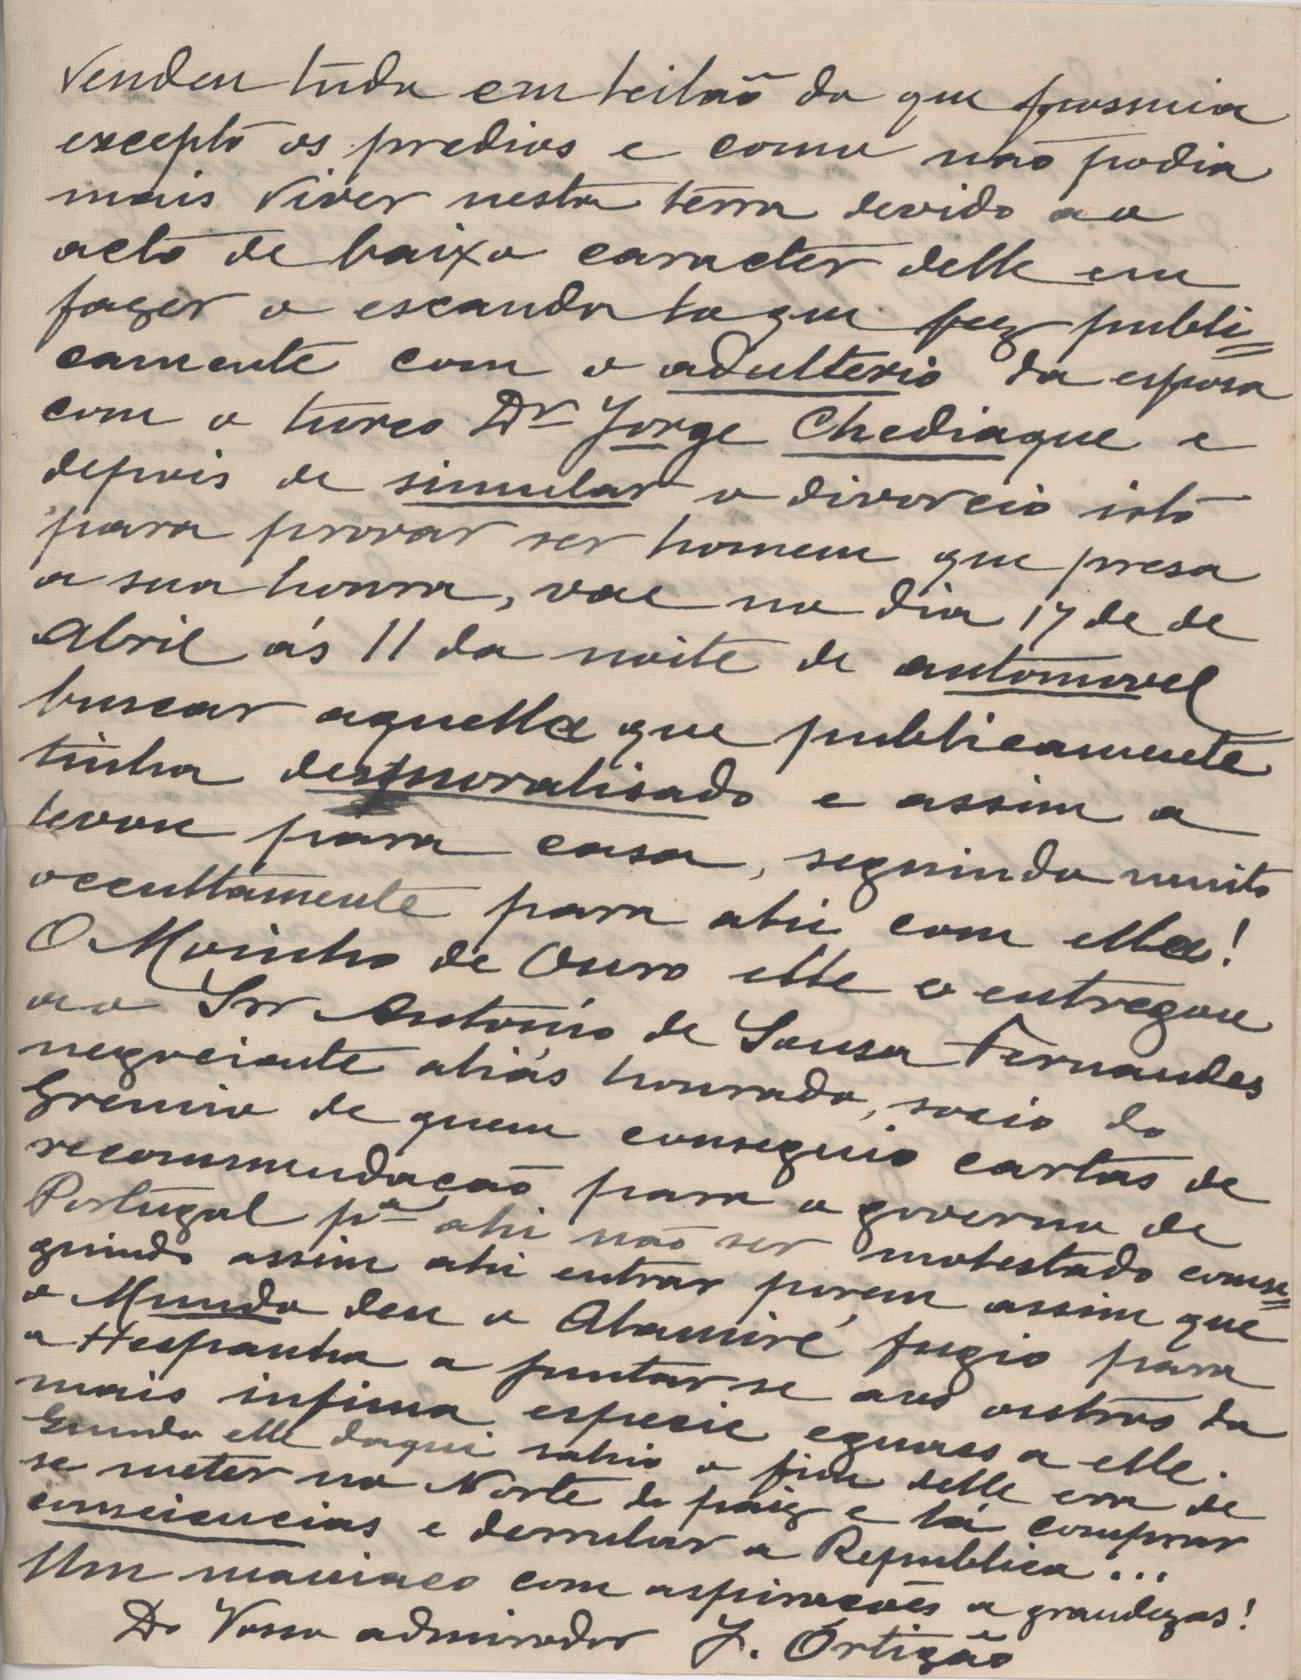 Vendeu tudo em leilão do que possuia
excepto os predios e como não podia
mais viver nesta terra devido ao
acto de baixo caracter delle em
fazer o escandalo que fez publi=
camente com o adulterio da esposa
com o turco Dr Jorge Chediaque e
depois de simular o divorcio isto
para provar ser homem que presa
a sua honra, vae no dia 17 de de
Abril ás 11 da noite de automovel
buscar aquella que publicamente
tinha desmoralisado e assim a
levou para casa, seguindo muito
occultamente para ahi com ella!
O Moinho de Ouro elle o entregou
ao Snr Antonio de Sousa Fernandes
negociante aliás honrado, socio do
Gremio de quem conseguio cartas de
recommendação para o governo de
Portugal pa ahi não ser molestado conse=
guindo assim ahi entrar porem assim que
o Mundo deu o Alamiré, fugio para
a Hespanha a juntar se aos outros da
mais infima especie eguaes a elle.
Quando elle daqui sahio o fim delle era de
se meter no Norte do paiz e lá comprar
consciencias e derrubar a Republica...
Um maniaco com aspirações a grandezas!
Do Vosso admirador J. Ortigão